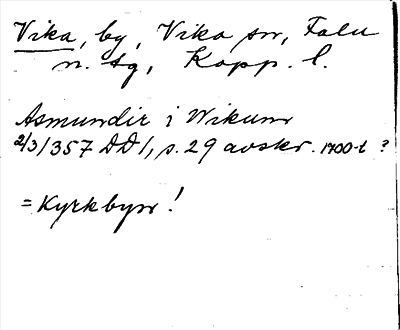 Vika, by, Vika sn, Falu
n. tg, Kopp. l.
Asmundir i Wikum
2/3 1357 DD 1, s. 29 avskr. 1700-t ?
= Kyrkbyn!